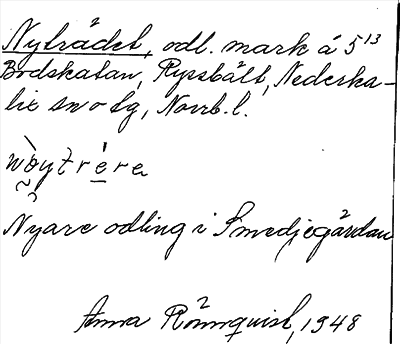 Nyträdet, odl. mark å 5¹³
Bodskatan, Ryssbält, Nederka-
lix sn o tg, Norrb. l.
wòytrére
Nyare odling i Smedjegårdan
Anna Rönnquist, 1948